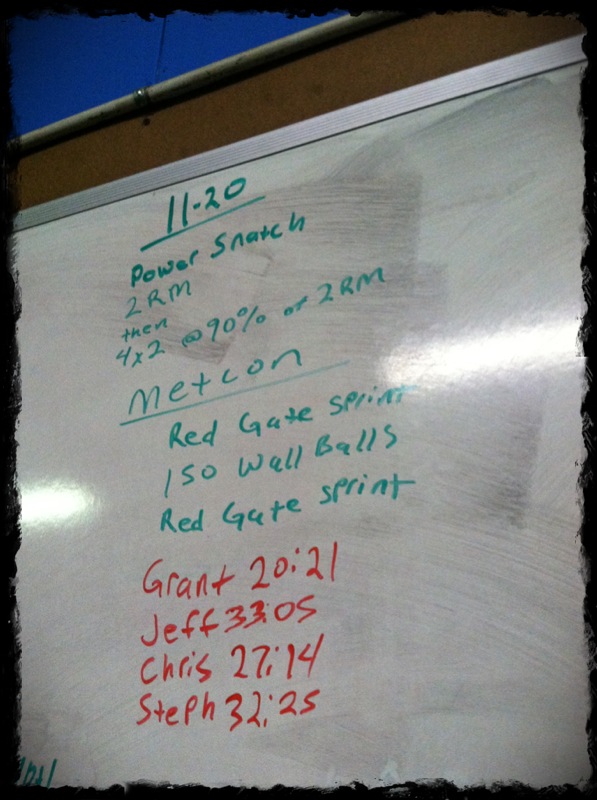 11-20
Power Snatch
2RM
then
4x2 @90% of 2RM
Metcon
Red Gate sprint
150 Wall Balls
Red Gate sprint
Grant 20:21
Jeff 33:05
Chris 27:14
Steph 32:25